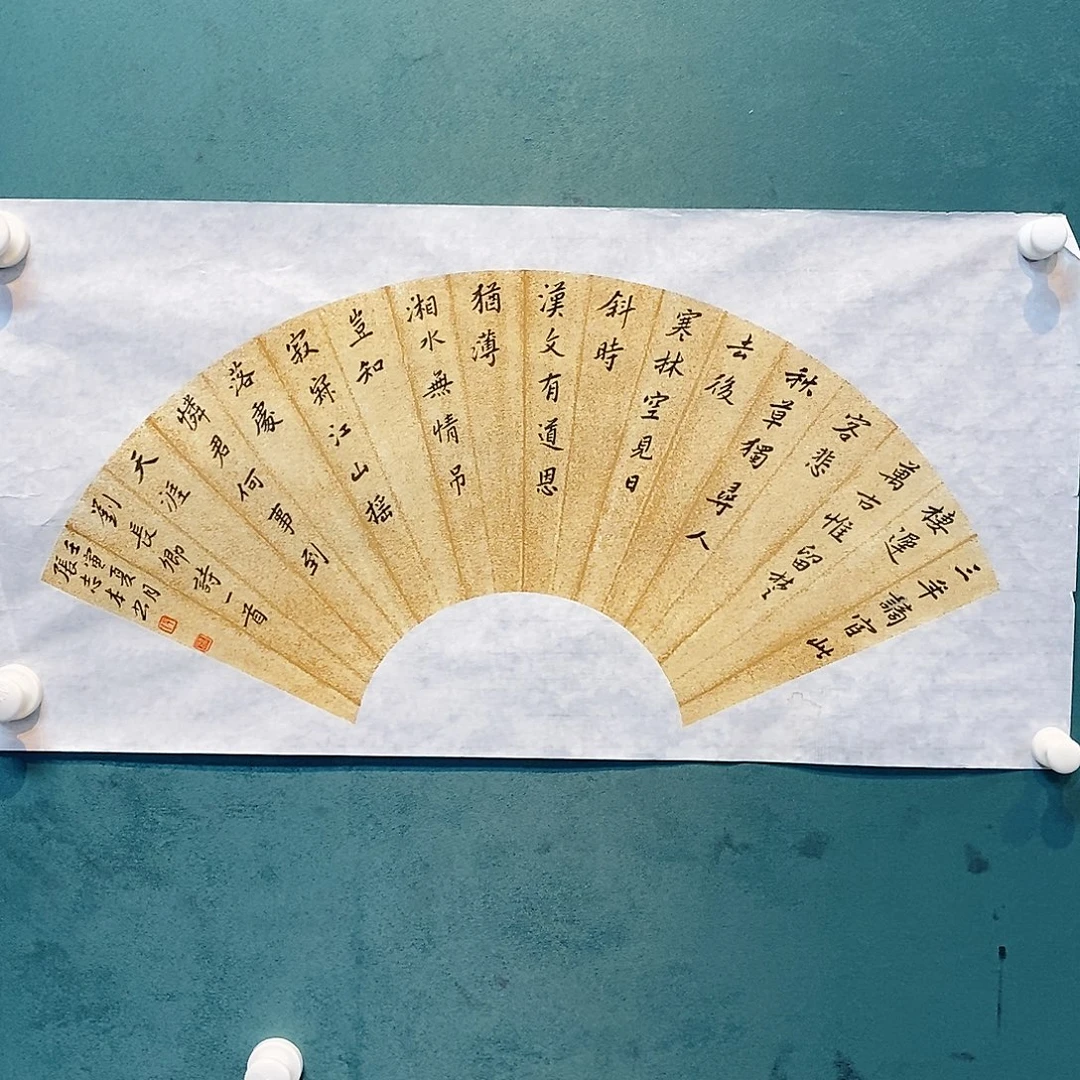 三年謫宦此
棲遲
萬古惟留楚
客悲
秋草獨尋人
去後
寒林空見日
斜時
漢文有道恩
猶薄
湘水無情吊
豈知
寂寞江山搖
落處
憐君何事到
天涯
劉長卿詩一首
壬寅夏月
張志本书